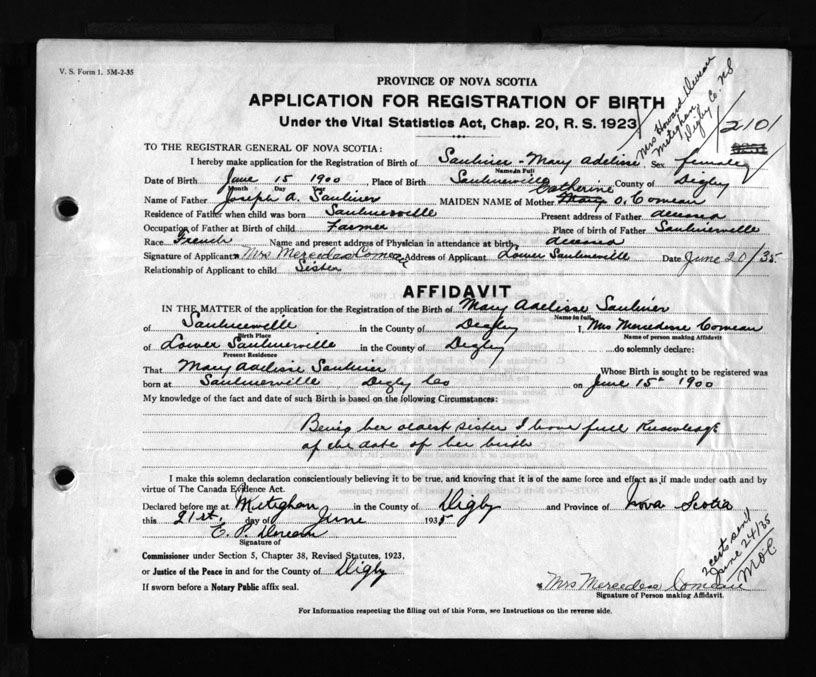 V. S. Form 1. 5M-2-35
PROVINCE OF NOVA SCOTIA
APPLICATION FOR REGISTRATION OF BIRTH
Under the Vital Statistics Act, Chap. 20, R. S. 1923
Mrs Howard
Meteghan
Digby Co. NS
2101
TO THE REGISTRAR GENERAL OF NOVA SCOTIA:
I hereby make application for the Registration of Birth of Saulnier - Mary Adelisse Sex female
Name in Full
Date of Birth June 15 1900 Place of Birth Saulnierville County of Digby
Month Day
Catherine
Name of Father Joseph A. Saulnier MAIDEN NAME of Mother Mary O. Comeau
Residence of Father when child was born Saulnierville Present address of Father
Occupation of Father at Birth of child Farmer Place of birth of Father Saulnierville
Race French Name and present address of Physician in attendance at birth
Signature of Applicant Mrs Meredesse Comeau Address of Applicant Lower Saulnierville Date June 20/35
Relationship of Applicant to child Sister
AFFIDAVIT
IN THE MATTER of the application for the Registration of the Birth of Mary Adelisse Saulnier
Name in Full
of Saulnierville in the County of Digby I, Mrs Meredesse Comeau
Birth Place Name of person making Affidavit
of Lower Saulnierville in the County of Digby do solemnly declare:
Present Residence
That Mary Adelisse Saulnier Whose Birth is sought to be registered was
born at Saulnierville Digby Co on June 15th 1900
My knowledge of the fact and date of such Birth is based on the following Circumstances:
Being her oldest sister I have full Knowledge
of the date of her birth
I make this solemn declaration conscientiously believing it to be true, and knowing that it is of the same force and effect as if made under oath and by
virtue of The Canada Evidence Act.
Declared before me at Meteghan in the County of Digby and Province of Nova Scotia
this 21st day of June 1935
E. P.
Signature of
Commissioner under Section 5, Chapter 38, Revised Statutes, 1923,
or Justice of the Peace in and for the County of Digby
If sworn before a Notary Public affix seal.
2 certs sent
June 24/35
Mrs Meredesse Comeau
Signature of Person making Affidavit.
For Information respecting the filling out of this Form, see Instructions on the reverse side.